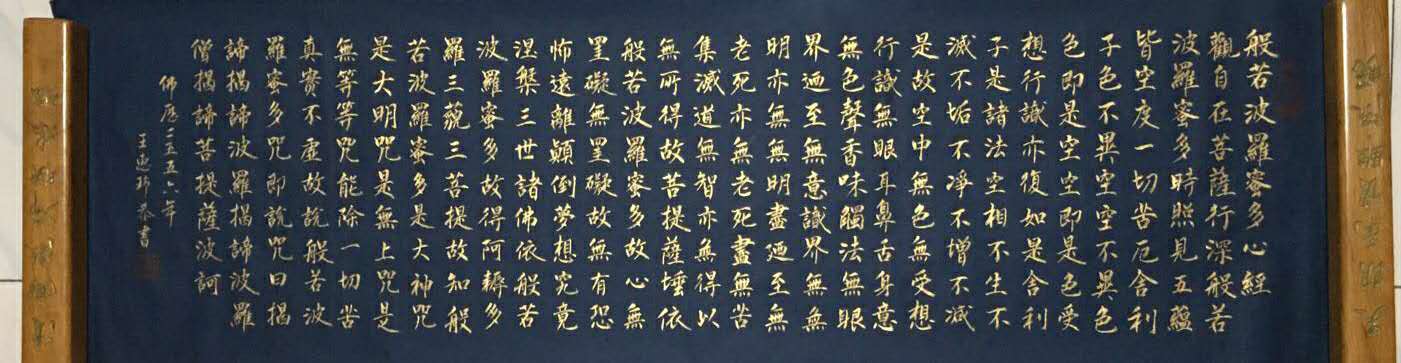 般若波羅蜜多心經
觀自在菩薩行深般若
波羅蜜多時照見五蘊
皆空度一切苦厄舍利
子色不異空空不異色
色即是空空即是色受
想行識亦復如是舍利
子是諸法空相不生不
滅不垢不淨不增不減
是故空中無色無受想
行識無眼耳鼻舌身意
無色聲香味觸法無眼
界迺至無意識界無無
明亦無無明盡迺至無
老死亦無老死盡無苦
集滅道無智亦無得以
無所得故菩提薩埵依
般若波羅蜜多故心無
罣礙無罣礙故無有恐
怖遠離顛倒夢想究竟
涅槃三世諸佛依般若
波羅蜜多故得阿耨多
羅三藐三菩提故知般
若波羅蜜多是大神咒
是大明咒是無上咒是
無等等咒能除一切苦
真實不虛故說般若波
羅蜜多咒即說咒曰揭
諦揭諦波羅揭諦波羅
僧揭諦菩提薩波訶
佛曆二五五六年
王恭書